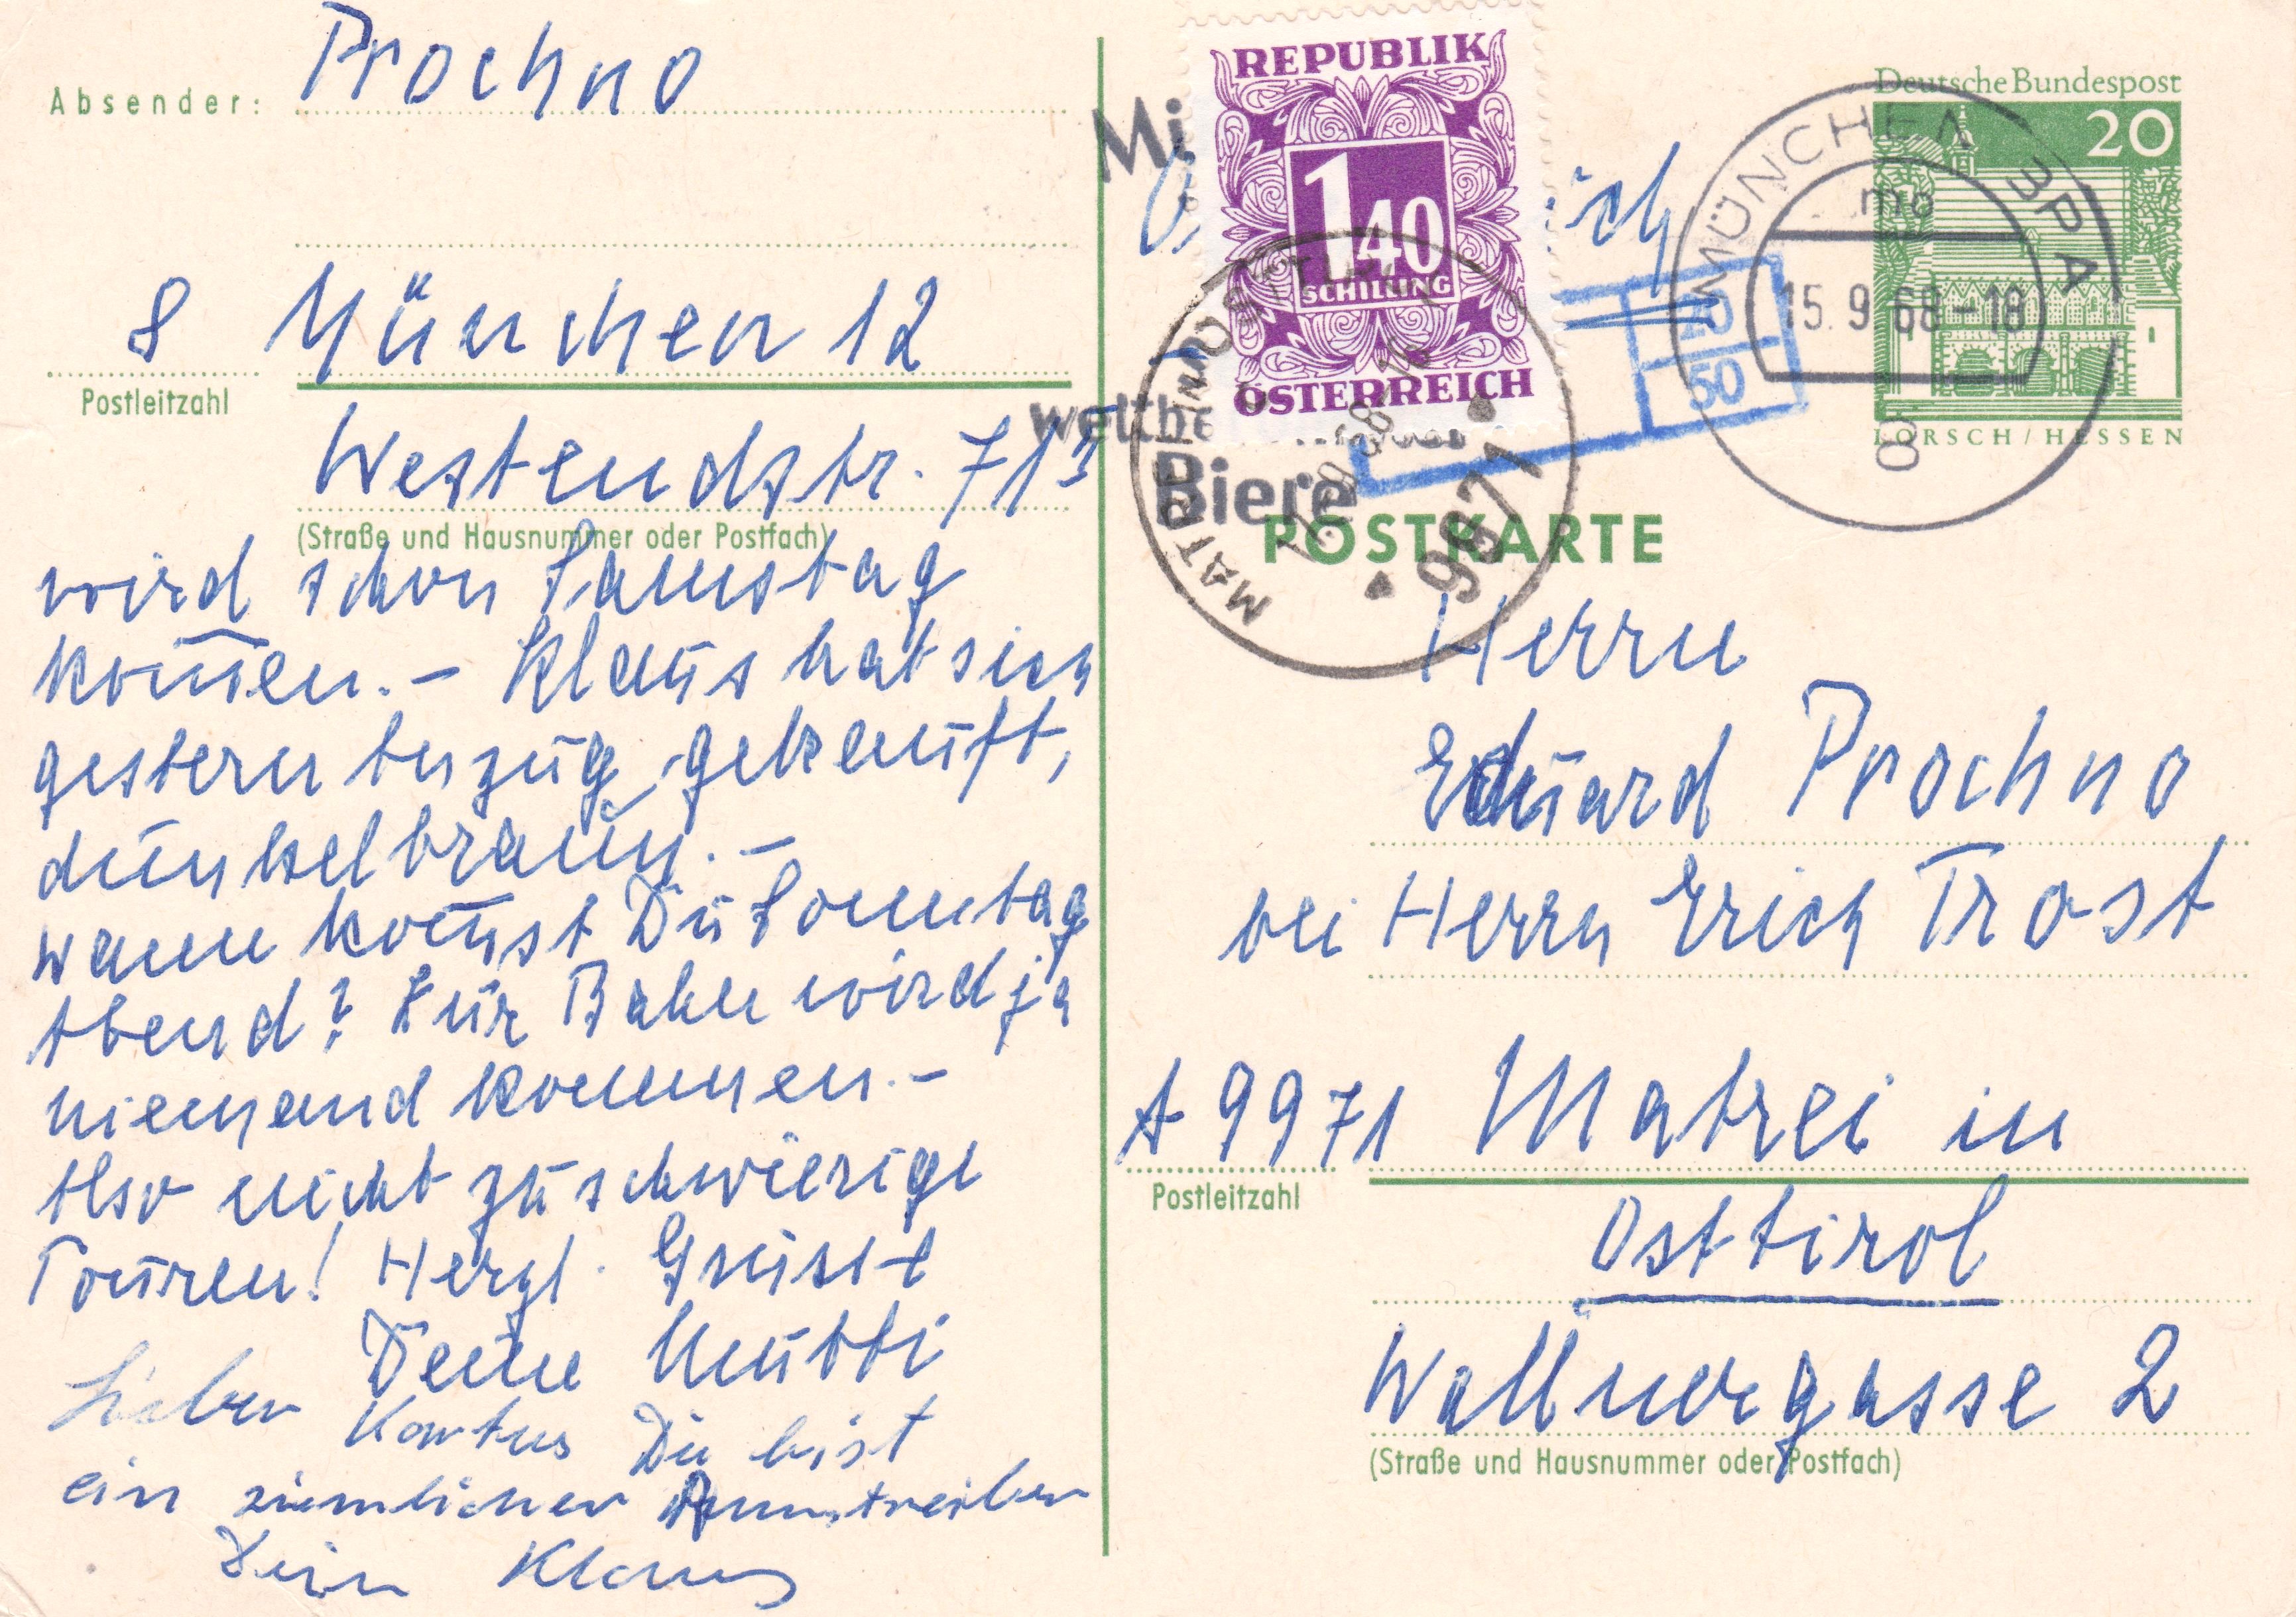 Absender: Prochno
8 München 12
Postleitzahl
Westendstr. 71
(Straße und Hausnummer oder Postfach)
wird schon Samstag
kom̅en. – Klaus hat sich
gestern Anzug gekauft,
dunkelbraun. –
wann kom̅st Du Sonntag
Abend? Zur Bahn wird ja
niemand kommen. –
Also nicht zu schwierige
Touren! Herzl. Grüsse
Deine Mutti
Lieber Kantus Du bist
ein ziemlicher
Dein Klaus
Mi
REPUBLIK
1 40
SCHILLING
ÖSTERREICH
Biere
MATREI IN OSTTIROL
17. 9. 68
9971
70
50
MÜNCHEN 3PA
mo
15. 9. 68 - 18
00
Deutsche Bundespost
20
LORSCH / HESSEN
POSTKARTE
Herrn
Eduard Prochno
bei Herrn Erich Trost
A 9971 Matrei in
Postleitzahl
Osttirol
Wallnergasse 2
(Straße und Hausnummer oder Postfach)